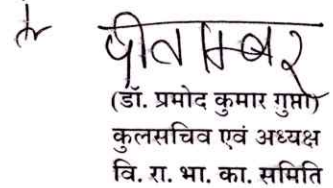 पीताम्बर
(डॉ. प्रमोद कुमार गुप्ता)
कुलसचिव एवं अध्यक्ष
वि. रा. भा. का. समिति